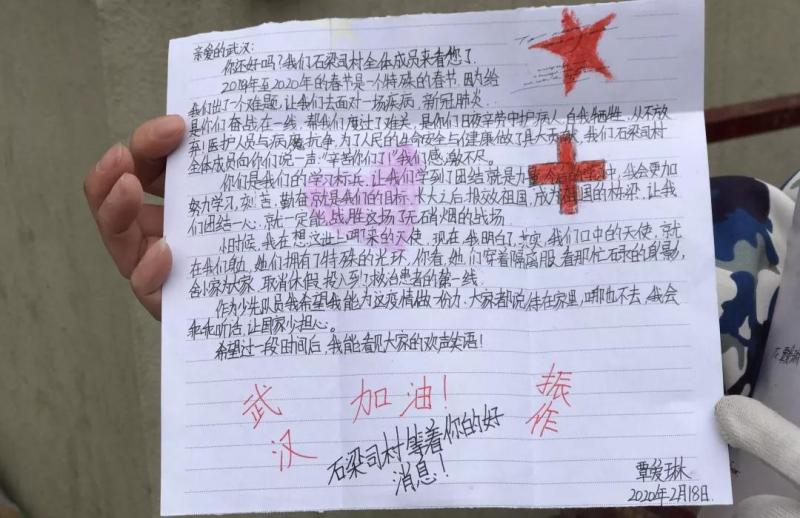 亲爱的武汉:
你还好吗?我们石梁司村全体成员来看您了.
2019年至2020年的春节是一个特殊的春节,因为给
我们出了个难题,让我们去面对一场疾病,新冠肺炎.
是你们奋战在一线,帮我们度过了难关,是你们日夜辛劳中护病人,自我牺牲,从不放
弃!医护人员与病魔抗争,为了人民的生命安全与健康做了具大贡献,我们石梁司村
全体成员向你们说一声:"辛苦你们了!"我们感激不尽。
你们是我们的学习标兵,让我们学到了团结就是力量,今后的学习中,我会更加
努力学习,刻苦,勤奋就是我们的目标,长大之后,报效祖国,成为祖国的栋梁,让我
们团结一心,就一定能战胜这场了无硝烟的战场.
小时候,我在想这世上哪来的天使,现在,我明白了,其实,我们口中的天使,就
在我们身边,她们拥有了特殊的光环,你看,她们穿着隔离服,看那忙碌的身影,
舍小家为大家,取消休假,投入到了救治患者的第一线.
作为少先队员我希望我能为这疫情做一份力,大家都说待在家里,哪也不去,我会
乖乖听话,让国家少担心。
希望过一段时间后,我能看见大家的欢声笑语!
武汉 加油! 振作
石梁司村等着你的好
消息!
覃爱琳
2020年2月18日